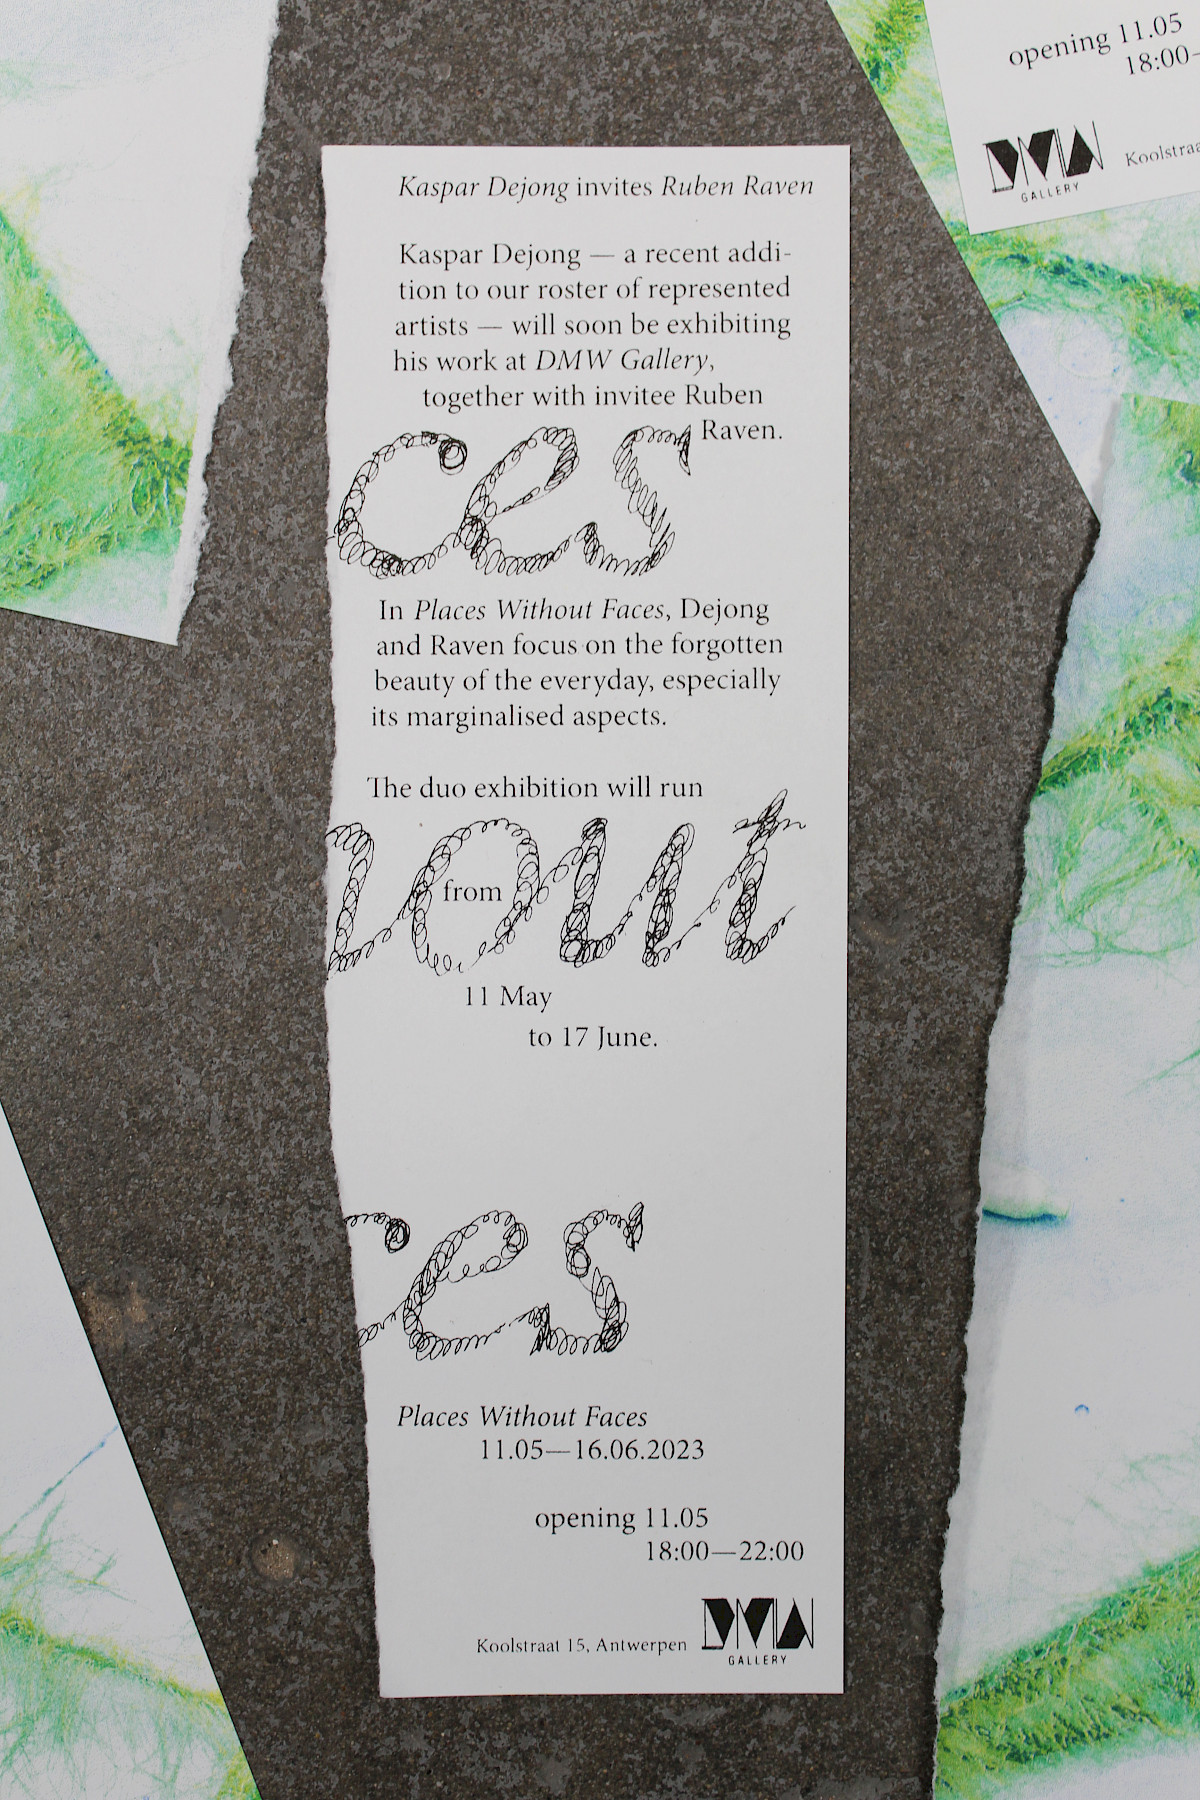 Kaspar Dejong invites Ruben Raven
Kaspar Dejong — a recent addi-
tion to our roster of represented
artists — will soon be exhibiting
his work at DMW Gallery,
together with invitee Ruben
Raven.
ces
In Places Without Faces, Dejong
and Raven focus on the forgotten
beauty of the everyday, especially
its marginalised aspects.
The duo exhibition will run
out
from
11 May
to 17 June.
ces
Places Without Faces
11.05—16.06.2023
opening 11.05
18:00—22:00
Koolstraat 15, Antwerpen
DMW
GALLERY
opening 11.05
18:00—
DMW
GALLERY
Koolstraa